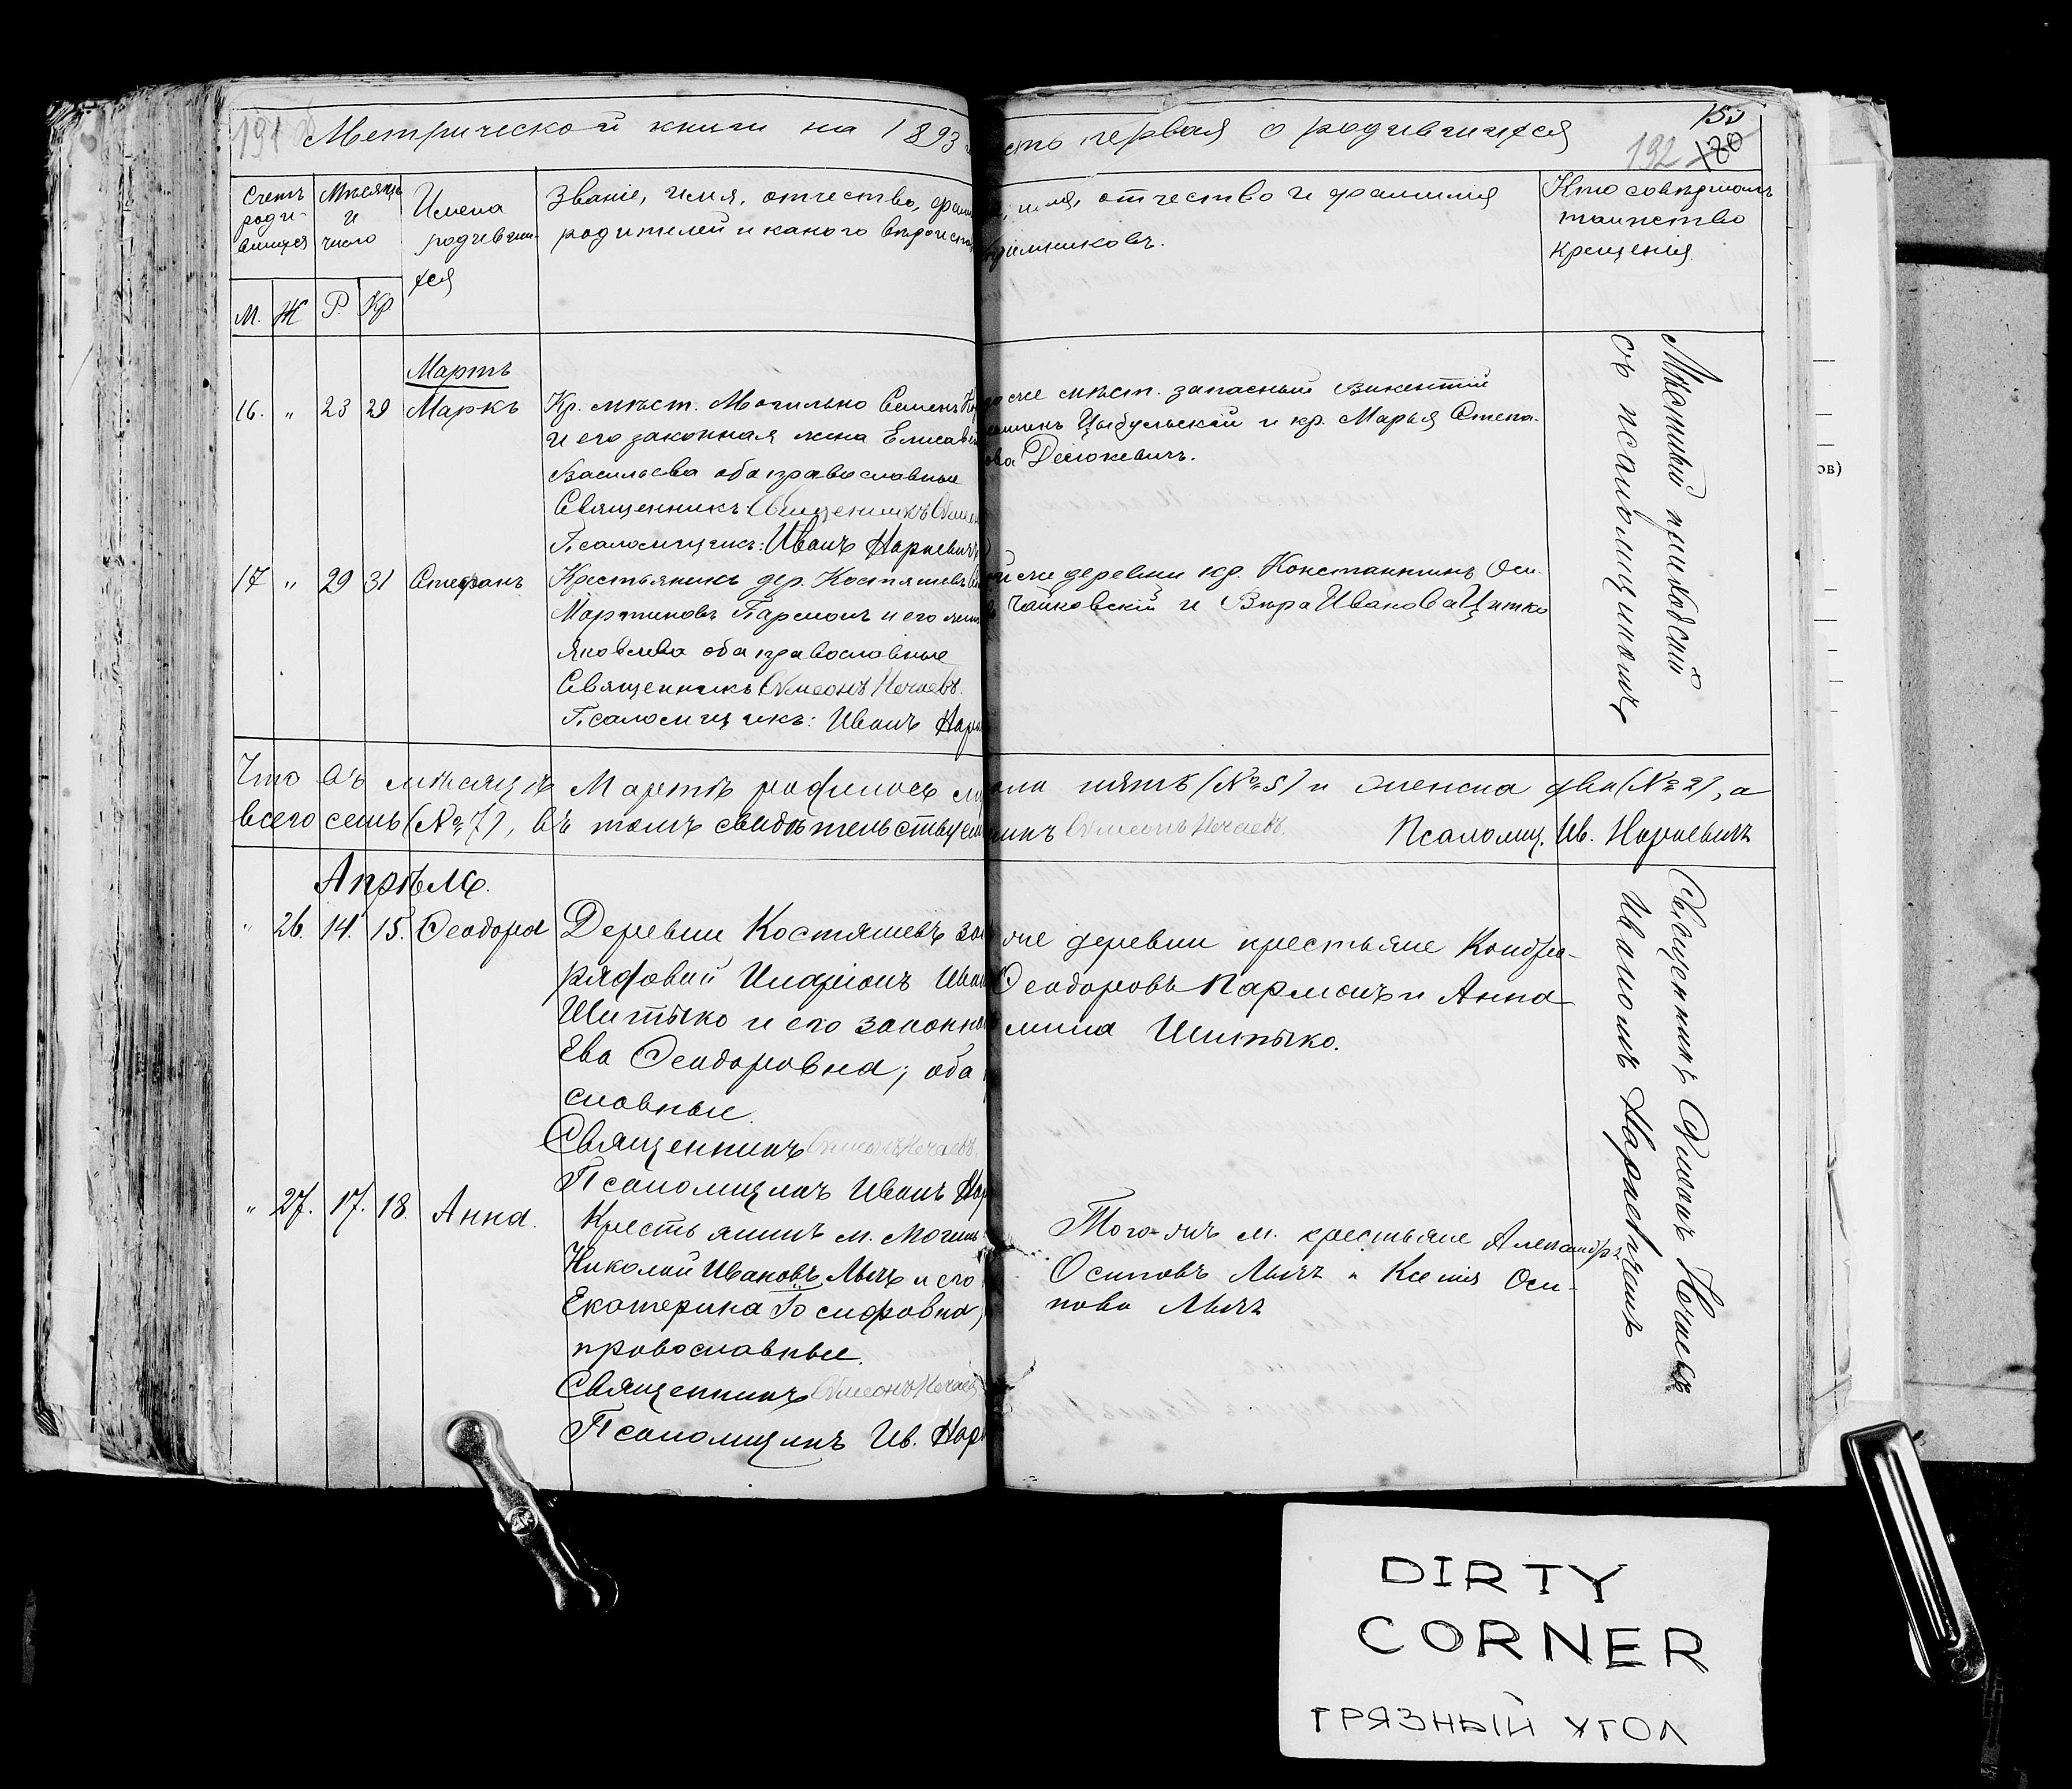 191 Метрической книги на 1893
сть первая о родившихся
155
192 120
Счетъ родившихся
Мѣсяцъ и число
Имена родившихся
М. Ж Р. Кр
Званіе, имя, отчество,
родителей и какого
имя, отчество и фамилія
Кто совершалъ
таинство
крещенія
Мартъ
16. " 23 29 Маркъ
Кр. мѣст. Могильно Семенъ
и его законная жена
Васильева оба православные
Священникъ
Псаломщикъ: Иванъ Наркевичъ
же мѣст. запасный Викентій
Цыбульскій и кр. Марья Степа-
ова Десюкевичъ.
Мѣстный приходскій
съ псаломщикомъ
17 " 29 31 Стефанъ
Крестьянинъ дер. Костяшевъ
Мартиновъ Пармонъ и его
Яковлева оба православные
Священникъ Симеонъ Нечаевъ.
Псаломщикъ: Иванъ
же деревни кр. Константинъ Оси-
Чайковскій и Вѣра Иванова
Что въ мѣсяцѣ Мартѣ родилось
пять (№ 5) и женска два (№ 2), а
всего семь (№ 7), въ томъ
Симеонъ Нечаевъ. Псаломщ. Ив. Наркевичъ
Апрѣль.
" 26. 14. 15. Ѳеодора
Деревни Костяшевъ
рядовой Иларіонъ
Шитько и его
Ева Ѳеодоровна; оба
славные.
Священникъ Симеонъ Нечаевъ.
Псаломщикъ Иванъ
же деревни крестьяне Кондра-
Ѳеодоровъ Пармонъ и Анна
Шитько.
Священникъ Симеонъ Нечаевъ
Иваномъ Наркевичемъ
" 27. 17. 18. Анна.
Крестьянинъ м.
Николай Ивановъ Лычъ и его
Екатерина Іосифовна,
православные.
Священникъ Симеонъ Нечаевъ
Псаломщикъ Ив.
Того-жъ м. крестьяне Александръ
Осиповъ Лычъ и Ксенія Оси-
пова Лычъ
ов)
DIRTY
CORNER
ГРЯЗНЫЙ УГОЛ